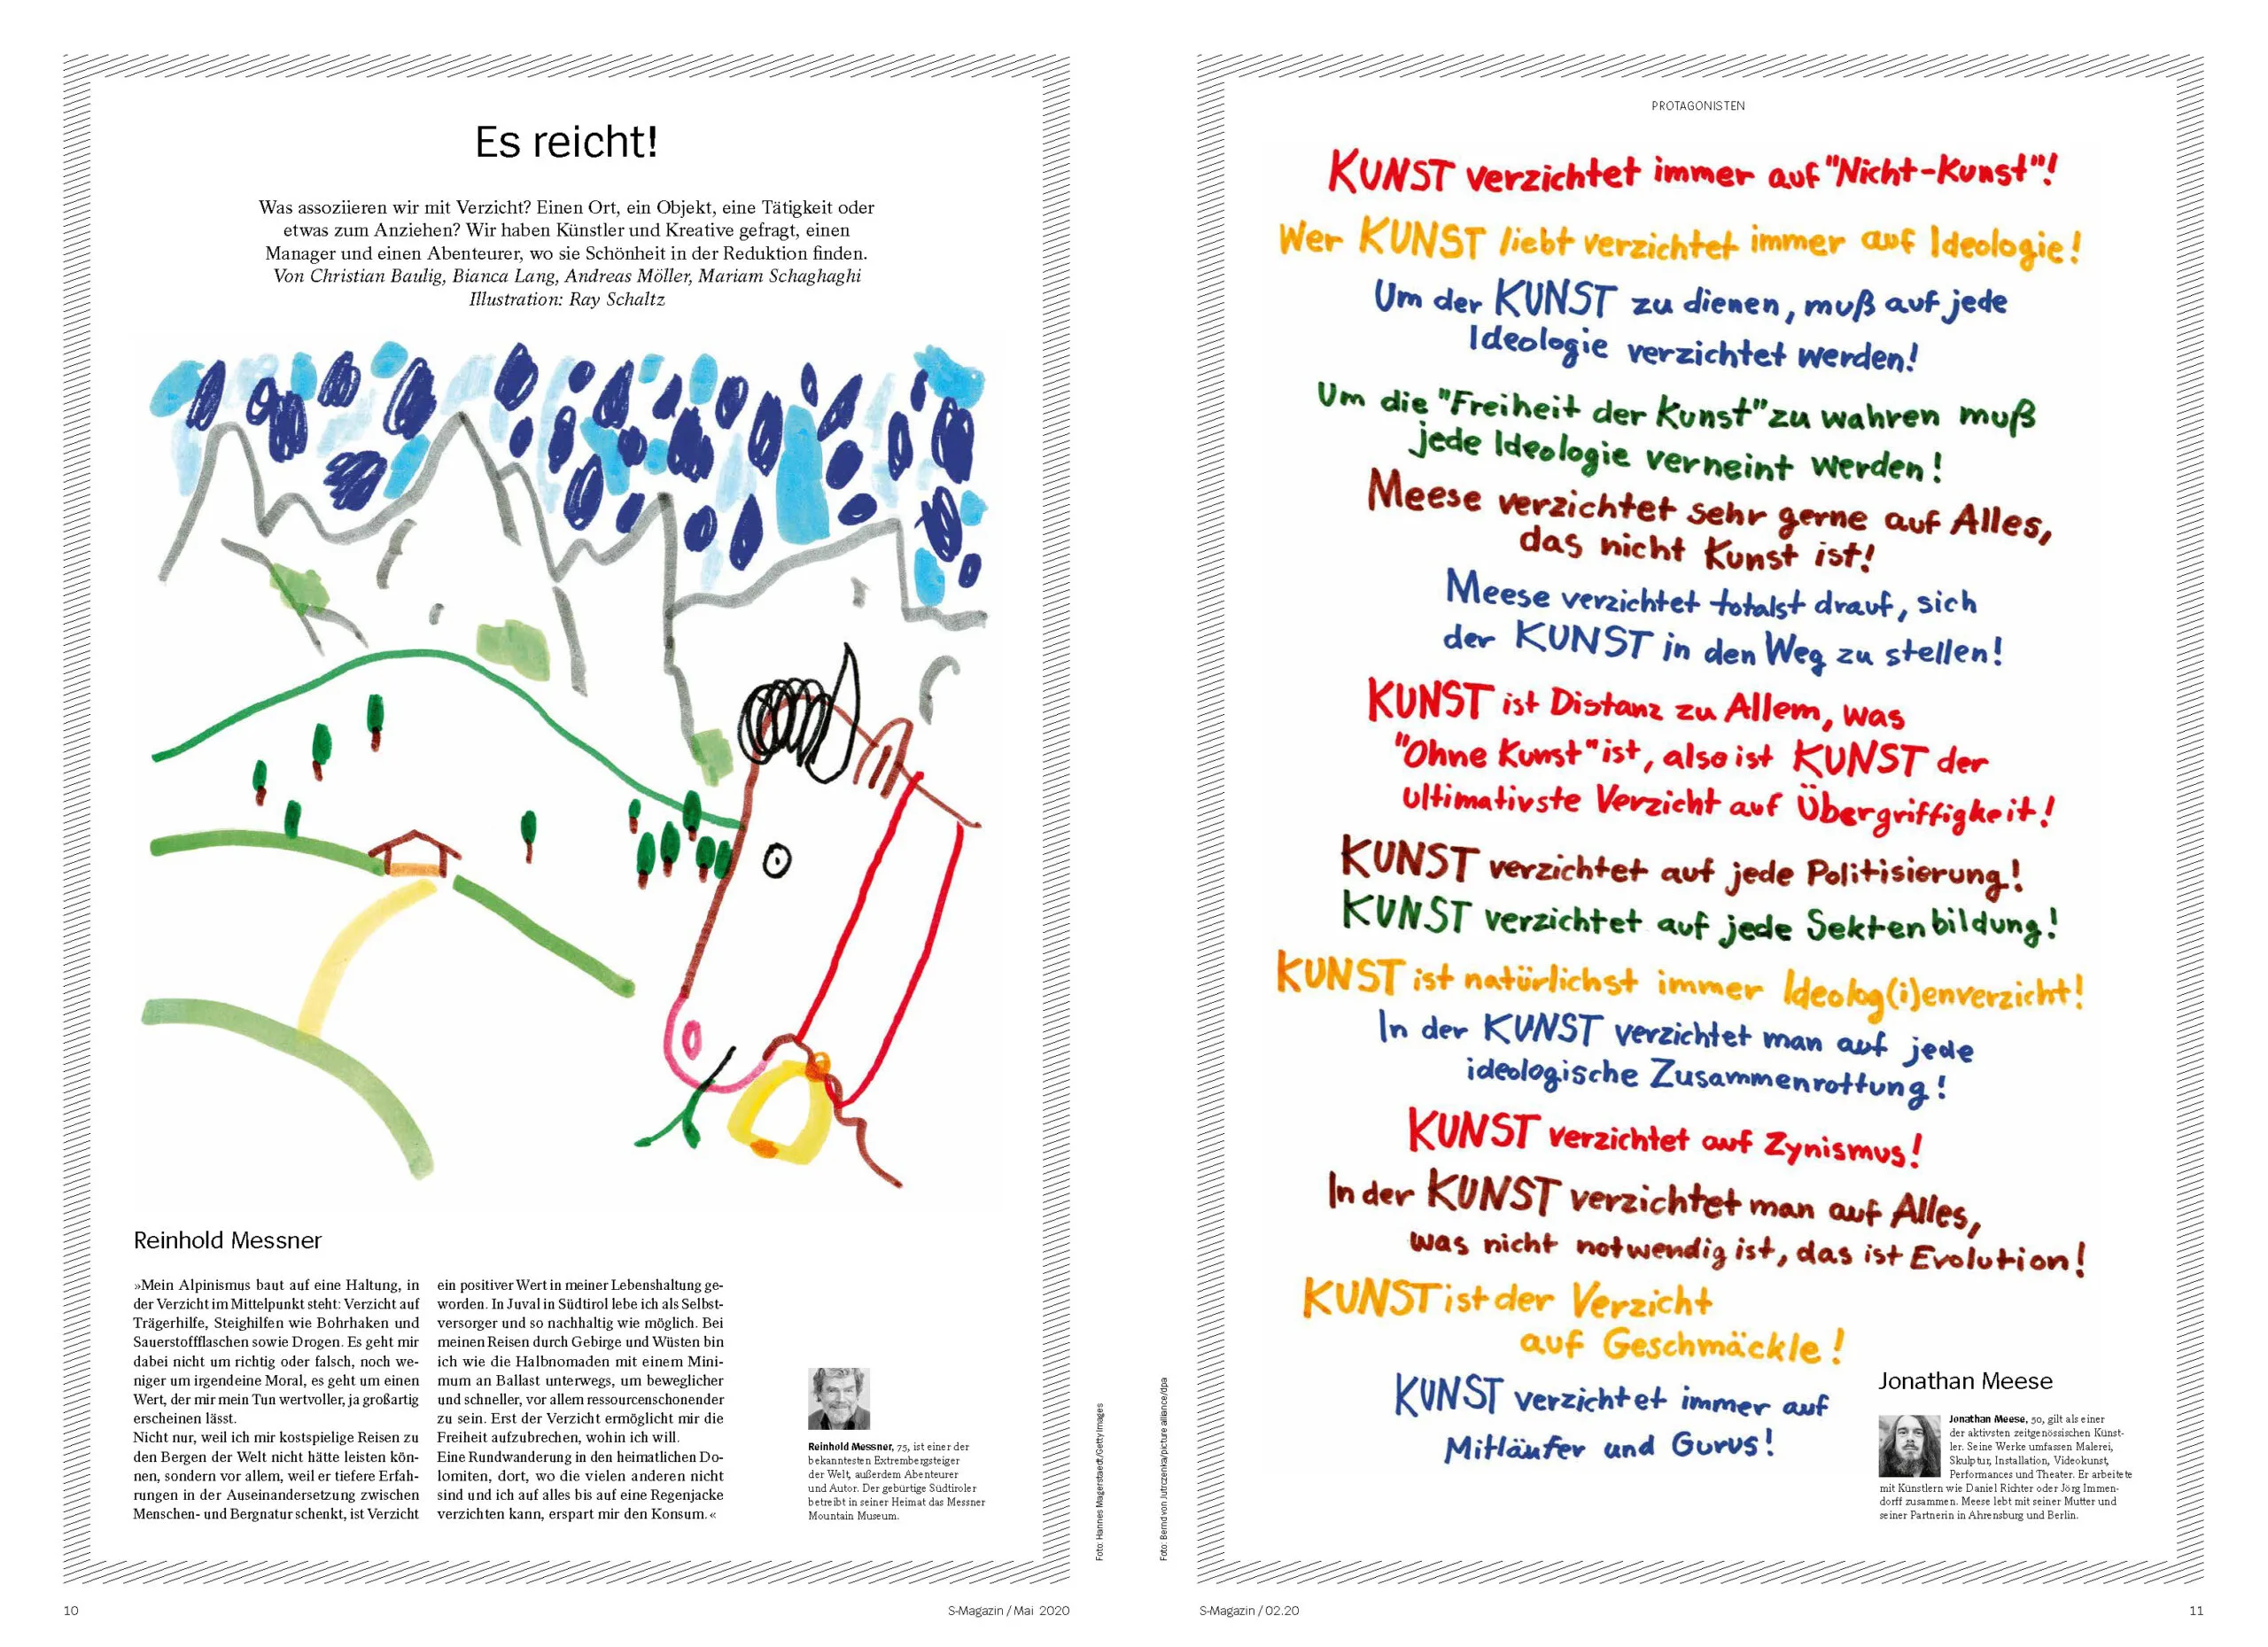 Es reicht!
Was assoziieren wir mit Verzicht? Einen Ort, ein Objekt, eine Tätigkeit oder
etwas zum Anziehen? Wir haben Künstler und Kreative gefragt, einen
Manager und einen Abenteurer, wo sie Schönheit in der Reduktion finden.
Von Christian Baulig, Bianca Lang, Andreas Möller, Mariam Schaghaghi
Illustration: Ray Schaltz
Reinhold Messner
»Mein Alpinismus baut auf eine Haltung, in
der Verzicht im Mittelpunkt steht: Verzicht auf
Trägerhilfe, Steighilfen wie Bohrhaken und
Sauerstoffflaschen sowie Drogen. Es geht mir
dabei nicht um richtig oder falsch, noch we-
niger um irgendeine Moral, es geht um einen
Wert, der mir mein Tun wertvoller, ja großartig
erscheinen lässt.
Nicht nur, weil ich mir kostspielige Reisen zu
den Bergen der Welt nicht hätte leisten kön-
nen, sondern vor allem, weil er tiefere Erfah-
rungen in der Auseinandersetzung zwischen
Menschen- und Bergnatur schenkt, ist Verzicht
ein positiver Wert in meiner Lebenshaltung ge-
worden. In Juval in Südtirol lebe ich als Selbst-
versorger und so nachhaltig wie möglich. Bei
meinen Reisen durch Gebirge und Wüsten bin
ich wie die Halbnomaden mit einem Mini-
mum an Ballast unterwegs, um beweglicher
und schneller, vor allem ressourcenschonender
zu sein. Erst der Verzicht ermöglicht mir die
Freiheit aufzubrechen, wohin ich will.
Eine Rundwanderung in den heimatlichen Do-
lomiten, dort, wo die vielen anderen nicht
sind und ich auf alles bis auf eine Regenjacke
verzichten kann, erspart mir den Konsum.«
Reinhold Messner, 75, ist einer der
bekanntesten Extrembergsteiger
der Welt, außerdem Abenteurer
und Autor. Der gebürtige Südtiroler
betreibt in seiner Heimat das Messner
Mountain Museum.
Foto: Hannes Magerstaedt/Getty Images
10
S-Magazin / Mai 2020
PROTAGONISTEN
KUNST verzichtet immer auf "Nicht-Kunst"!
Wer KUNST liebt verzichtet immer auf Ideologie!
Um der KUNST zu dienen, muß auf jede
Ideologie verzichtet werden!
Um die "Freiheit der Kunst" zu wahren muß
jede Ideologie verneint werden!
Meese verzichtet sehr gerne auf Alles,
das nicht Kunst ist!
Meese verzichtet totalst drauf, sich
der KUNST in den Weg zu stellen!
KUNST ist Distanz zu Allem, was
"Ohne Kunst" ist, also ist KUNST der
ultimativste Verzicht auf Übergriffigkeit!
KUNST verzichtet auf jede Politisierung!
KUNST verzichtet auf jede Sektenbildung!
KUNST ist natürlichst immer Ideolog(i)enverzicht!
In der KUNST verzichtet man auf jede
ideologische Zusammenrottung!
KUNST verzichtet auf Zynismus!
In der KUNST verzichtet man auf Alles,
was nicht notwendig ist, das ist Evolution!
KUNST ist der Verzicht
auf Geschmäckle!
KUNST verzichtet immer auf
Mitläufer und Gurus!
Jonathan Meese
Jonathan Meese, 50, gilt als einer
der aktivsten zeitgenössischen Künst-
ler. Seine Werke umfassen Malerei,
Skulptur, Installation, Videokunst,
Performances und Theater. Er arbeitete
mit Künstlern wie Daniel Richter oder Jörg Immen-
dorff zusammen. Meese lebt mit seiner Mutter und
seiner Partnerin in Ahrensburg und Berlin.
Foto: Bernd von Jutrczenka/picture alliance/dpa
S-Magazin / 02.20
11